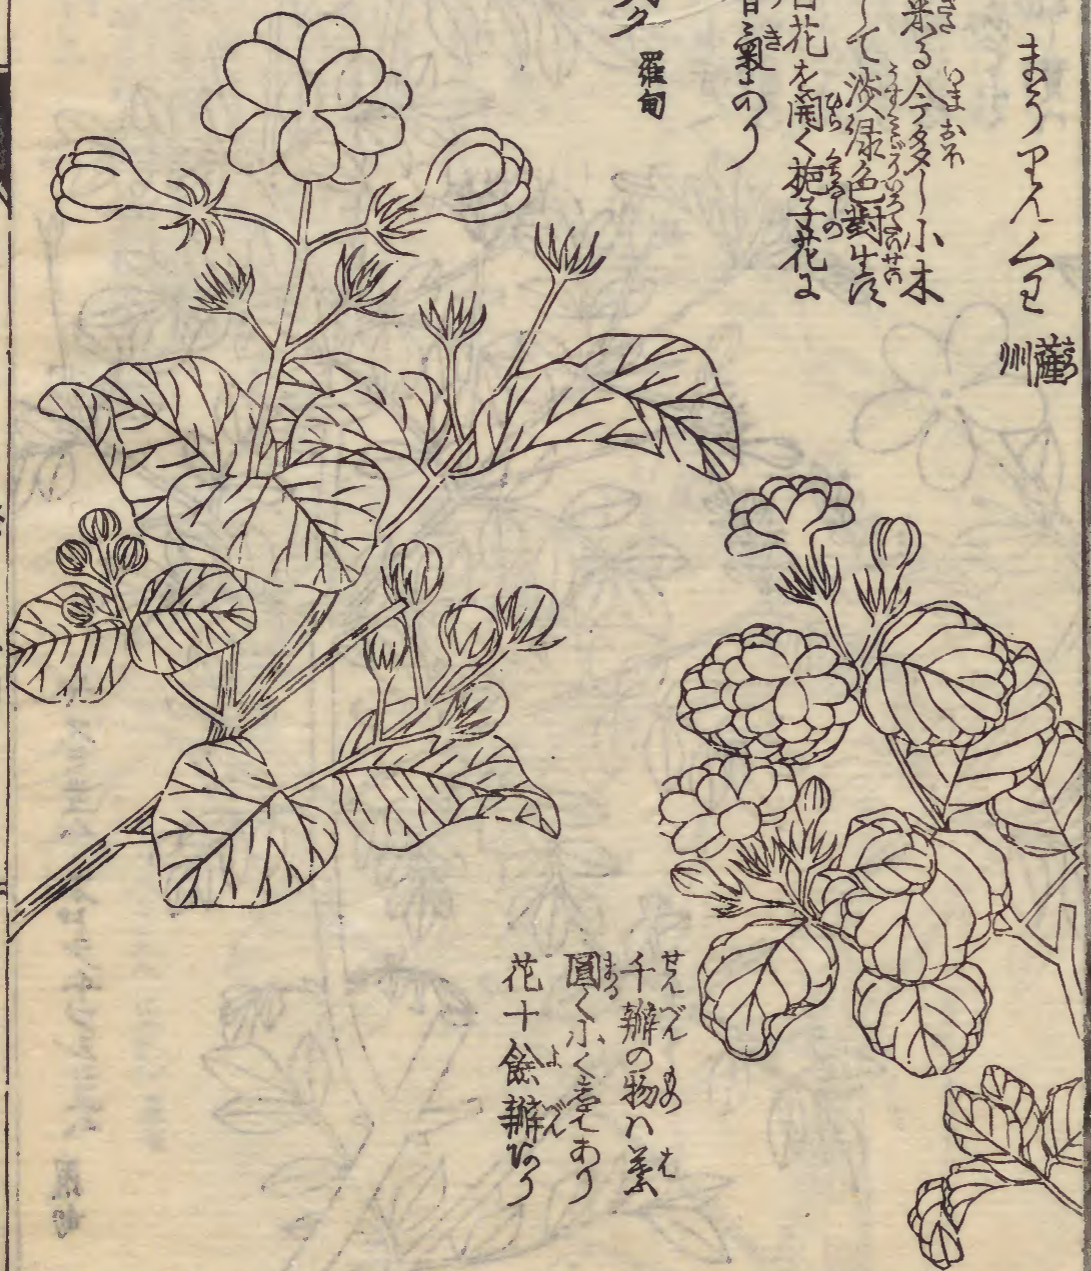 まうりんくわ 薩州
来る今多し小木
して淡緑色對生す
白花を開く梔子花に
香氣あり
羅甸
千瓣の物ハ葉
圓く小くてあり
花十餘瓣なり